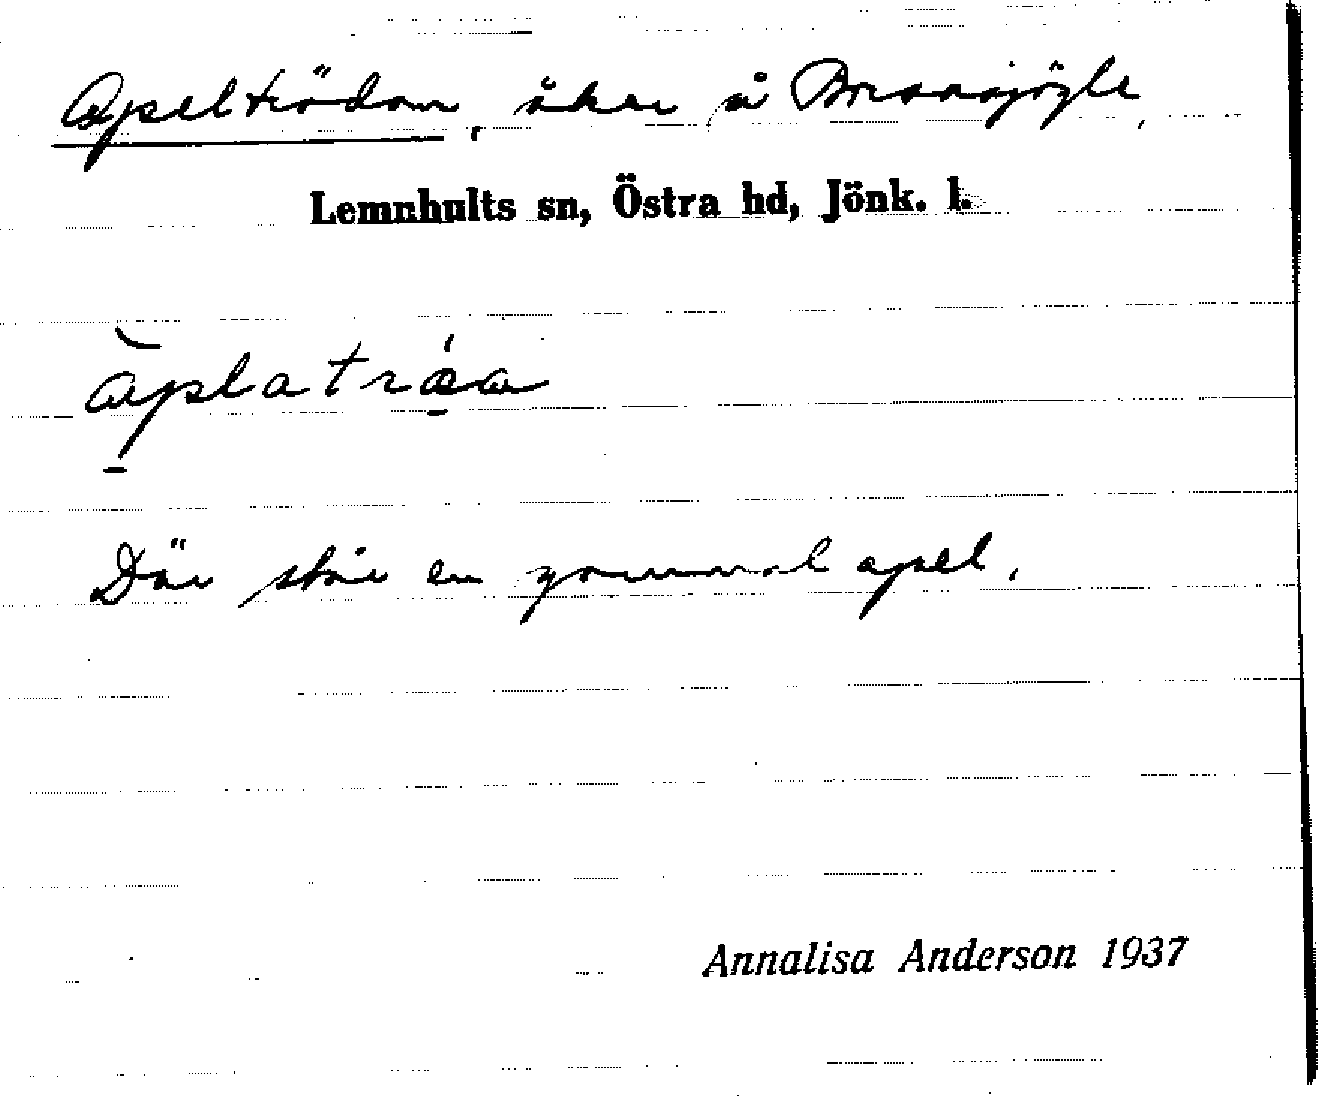 Apelträdan, åker å
Lemnhults sn, Östra hd, Jönk. l.
àplatrǽa
Där står en gammal apel.
Annalisa Anderson 1937